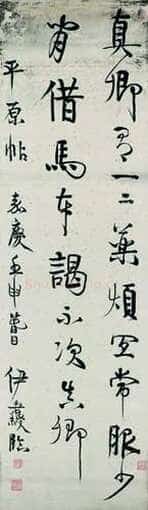 真卿有一二藥須常服少
借馬奉謁不次真卿
平原帖 嘉慶壬申日 伊秉綬臨